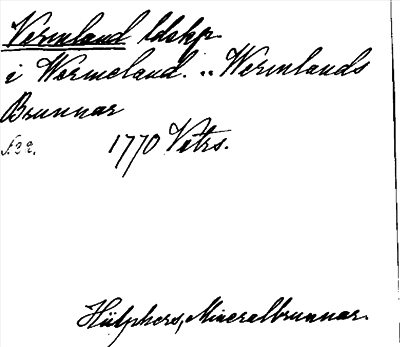 Vermland ldskp
i Wermeland. .. Wermlands
Brunnar
s. 22. 1770 Vetrs.
Hülphers, Mineralbrunnar.